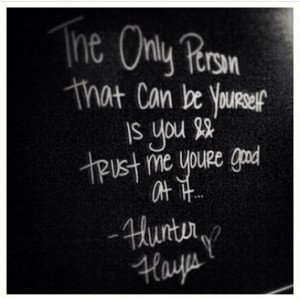 The Only Person
that can be Yourself
is you &&
trust me youre good
at it...
-Hunter
Hayes